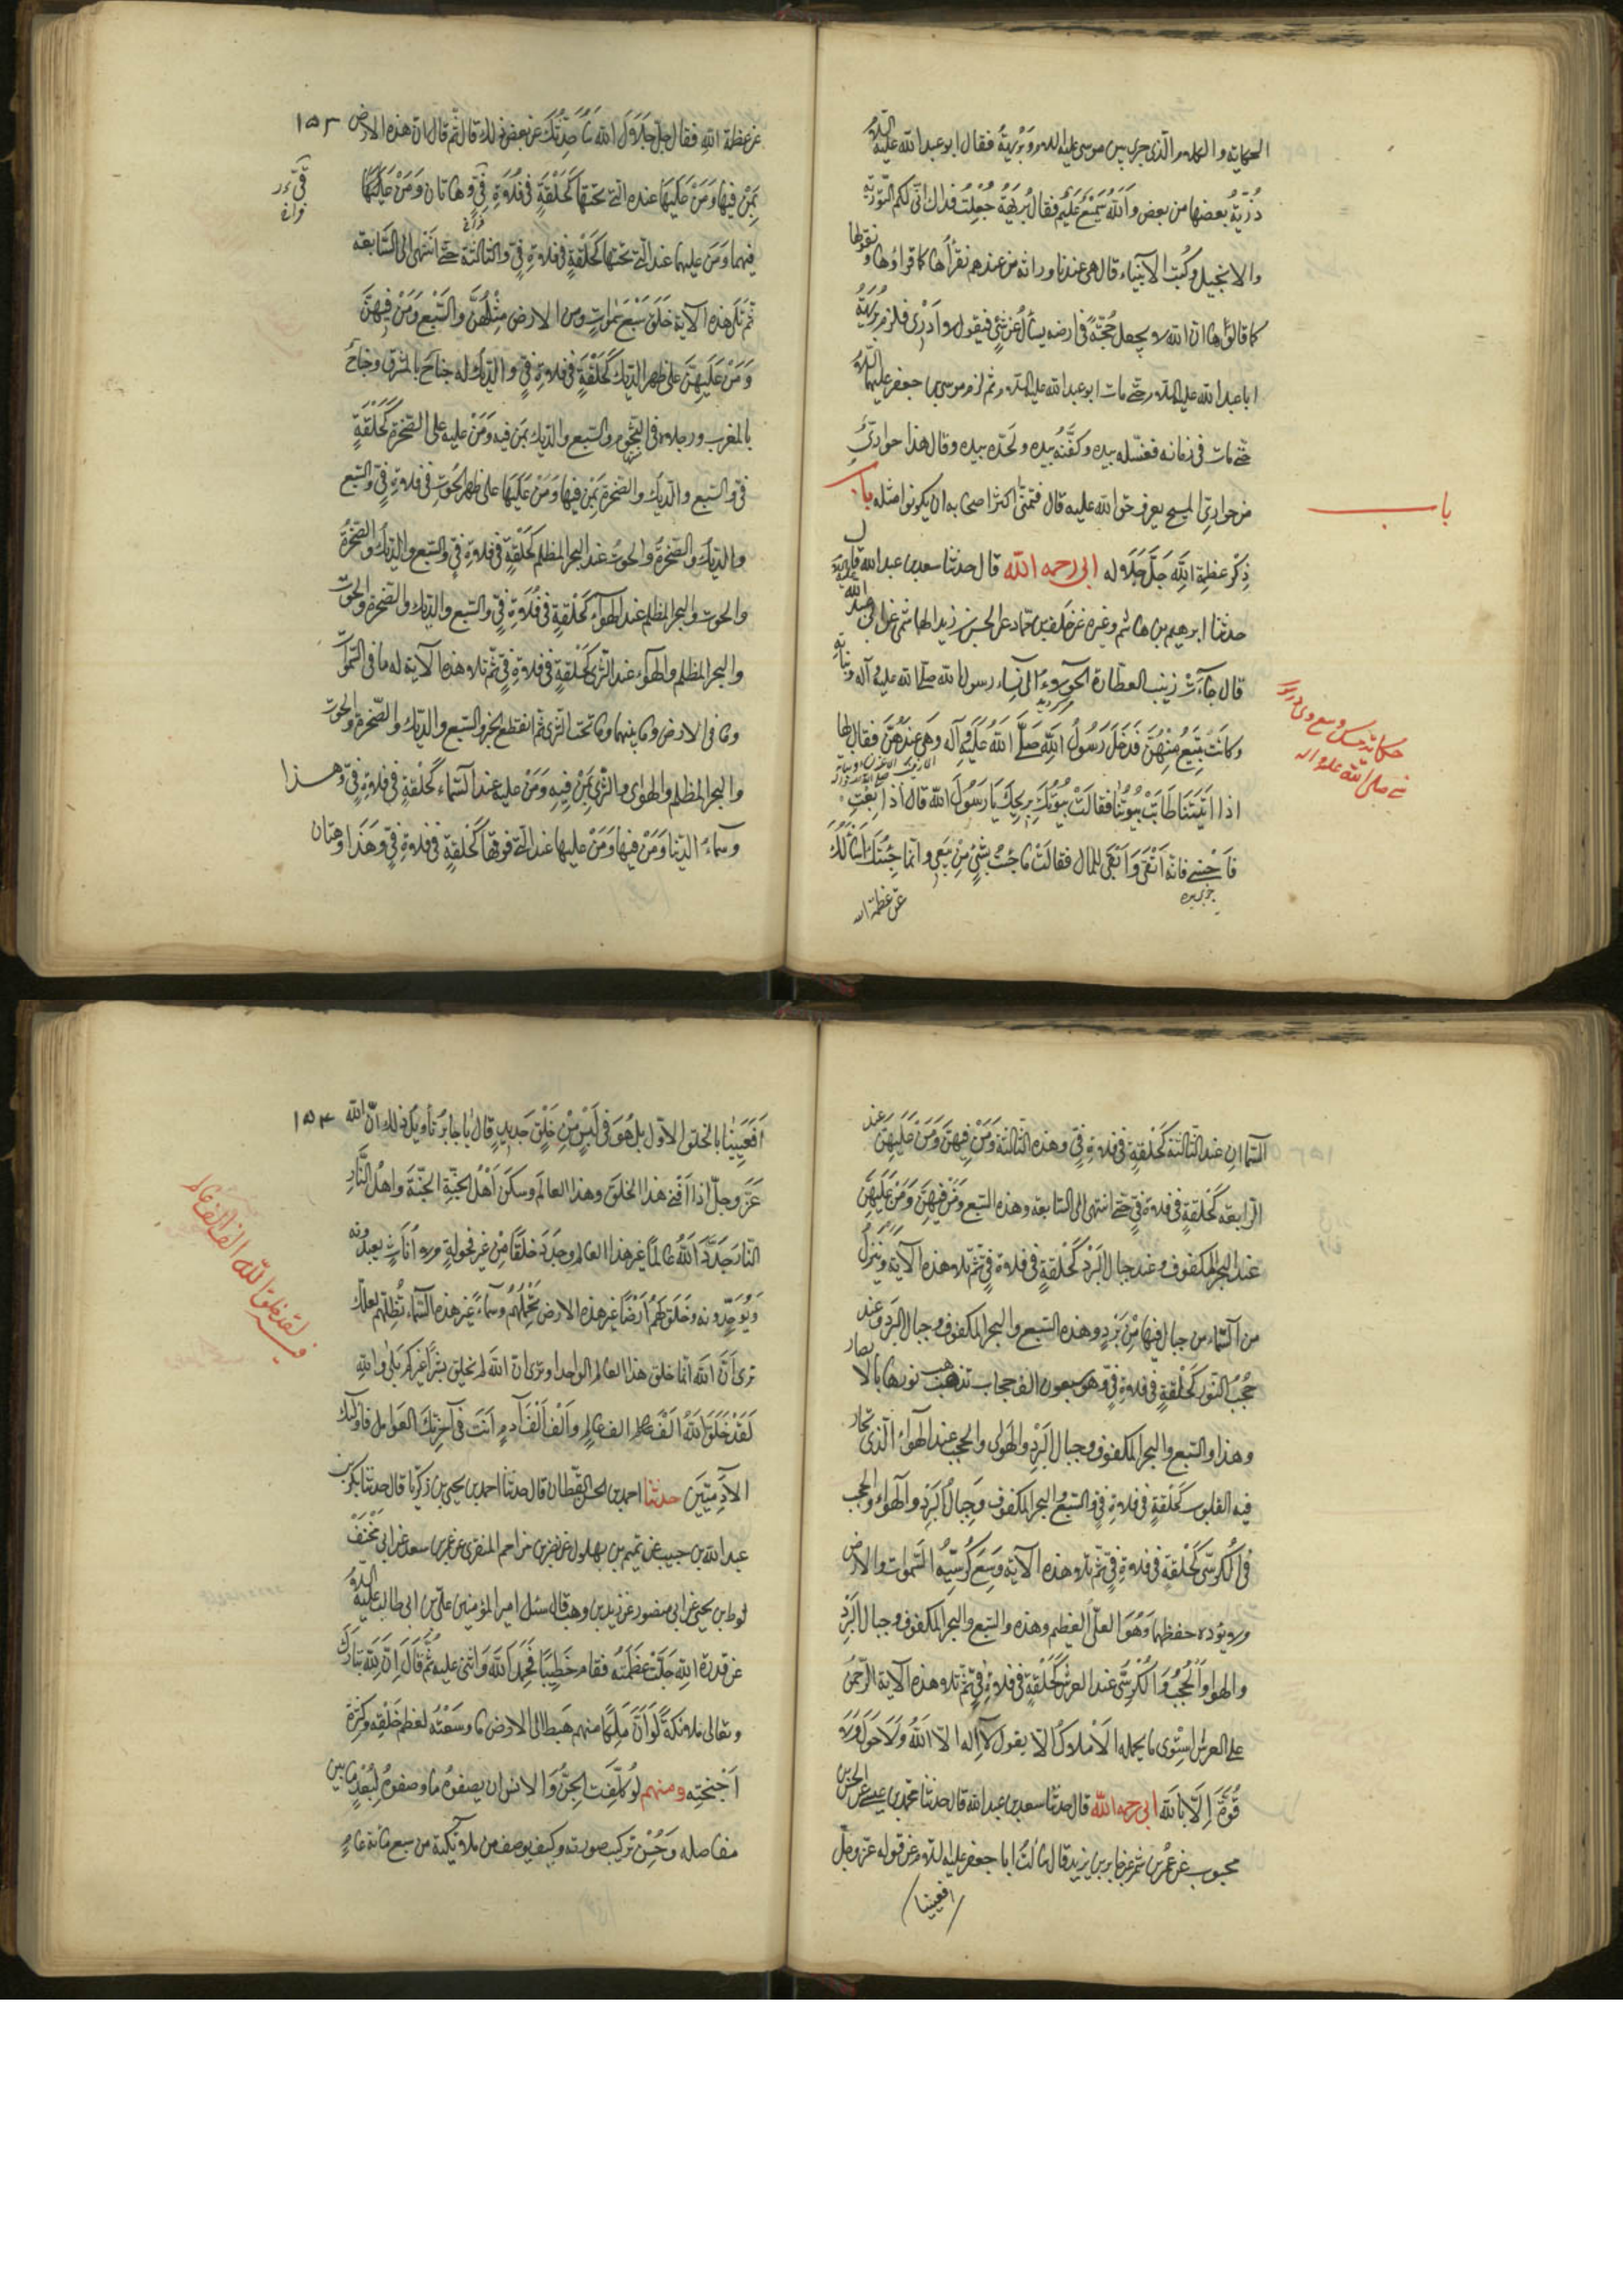 الحكاية والكلام الذي جرى بين موسى عليه السلام وبريهة فقال ابو عبد الله عليه السلام
ذُرِّيَّةً بعضها من بعض والله سميع عليم فقال بريهة جُعِلتُ فداك انّى لكم التورية
والانجيل وكتب الانبياء قال هي عندنا وراثة من عندهم نقرأها كما قرأوها ونقولها
كما قالوها ان الله لا يجعل حُجّةً في ارضه يسأل عن شيء فيقول لا ادري فلزم بريهة
ابا عبد الله عليه السلام حتى مات ابو عبد الله عليه السلام ثم لزم موسى بن جعفر عليهما السلام
حتى مات في زمانه فغسّله بيده وكفّنه بيده ولحّده بيده وقال هذا حواريّ
من حواريّ المسيح يعرف حق الله عليه قال فتمنّى اكثر اصحابه ان يكونوا مثله باب
باب
ذكر عظمة الله جلّ جلاله ابي رحمه الله قال حدثنا سعد بن عبد الله قال
حدثنا ابراهيم بن هاشم وغيره عن خلف بن حماد عن الحسن بن زيد الهاشمي عن ابي عبد الله عليه
قال جاءت زينب العطارة الحولاء الى نساء رسول الله صلى الله عليه وآله وبناته
وكانت تبيع منهن فدخل رسول الله صلّى الله عليه وآله وهي عندهن فقال لها
اذا اتيتنا طابت بيوتنا فقالت بيوتك بريحك يا رسول الله قال اذا بعتِ
فاحسني فانه اتقى وابقى للمال فقالت ما جئت بشيء من بيعي وانما جئتك اسألك
عن عظمة الله
صلى الله عليه وآله
عن عظمة الله فقال جلّ جلال الله سأحدّثك عن بعض ذلك قال ثم قال ان هذه الارض ١٥٣
بمن فيها ومن عليها عند التي تحتها كحلقة في فلاة قيّ وهاتان ومن
فيهما ومن عليهما عند التي تحتها كحلقة في فلاة قيّ والثالثة حتى انتهى الى السابعة
ثم تلا هذه الآية خلق سبع سموات ومن الارض مثلهن والسبع ومن فيهن
ومن عليهن على ظهر الديك كحلقة في فلاة قيّ والديك له جناح بالمشرق وجناح
بالمغرب ورجلاه في التخوم والسبع والديك بمن فيه ومن عليه على الصخرة كحلقة
في والسبع والديك والصخرة بمن فيها ومن عليها على ظهر الحوت في فلاة قيّ والسبع
والديك والصخرة والحوت عند البحر المظلم كحلقة في فلاة قيّ والسبع والديك والصخرة
والحوت والبحر المظلم عند الهواء كحلقة في فلاة قيّ والسبع والديك والصخرة والحوت
والبحر المظلم والهواء عند الثرى كحلقة في فلاة قيّ ثم تلا هذه الآية له ما في السموات
وما في الارض وما بينهما وما تحت الثرى ثم انقطع الخبر والسبع والديك والصخرة والحوت
والبحر المظلم والهواء والثرى بمن فيه ومن عليه عند السماء كحلقة في فلاة قيّ وهذا
وسماء الدنيا ومن فيها ومن عليها عند التي فوقها كحلقة في فلاة قيّ وهذا وهاتان
السماءان عند الثالثة كحلقة في فلاة قيّ وهذه الثالثة ومن فيهن ومن عليهن عند
الرابعة كحلقة في فلاة قيّ حتى انتهى الى السابعة وهذه السبع ومن فيهن ومن عليهن
عند البحر المكفوف وعند جبال البرد كحلقة في فلاة قيّ ثم تلا هذه الآية وينزل
من السماء من جبال فيها من برد وهذه السبع والبحر المكفوف وجبال البرد عند
حجب النور كحلقة في فلاة قيّ وهو سبعون الف حجاب تذهب نورها بالابصار
وهذا والسبع والبحر المكفوف وجبال البرد والهواء والحجب عند الهواء الذي تحار
فيه القلوب كحلقة في فلاة قيّ والسبع والبحر المكفوف وجبال البرد والهواء والحجب
في الكرسي كحلقة في فلاة قيّ ثم تلا هذه الآية وسع كرسيه السموات والارض
ولا يؤده حفظهما وهو العلي العظيم وهذه والسبع والبحر المكفوف وجبال البرد
والهواء والحجب والكرسي عند العرش كحلقة في فلاة قيّ ثم تلا هذه الآية الرحمن
على العرش استوى ما يحمله الاملاك الا يقول لا اله الا الله ولا حول ولا
قوة الا بالله ابي رحمه الله قال حدثنا سعد بن عبد الله قال حدثنا محمد بن عيسى عن الحسن بن
محبوب عن عمرو بن شمر عن جابر بن يزيد قال سألت ابا جعفر عليه السلام عن قوله عزوجل
افعيينا
افعيينا بالخلق الاول بل هو في لبس من خلق جديد قال يا جابر تأويل ذلك ان الله ١٥٤
عزّ وجلّ اذا افنى هذا الخلق وهذا العالم وسكن اهل الجنة الجنة واهل النار
النار جدّد الله عالماً غير هذا العالم وجدّد خلقاً من غير فحولة ولا اناث يعبدونه
ويوحّدونه وخلق لهم ارضاً غير هذه الارض تحملهم وسماءً غير هذه السماء تظلّهم لعلك
ترى ان الله انما خلق هذا العالم الواحد وترى ان الله لم يخلق بشراً غيركم بلى والله
لقد خلق الله الف الف عالم والف الف آدم انت في آخر تلك العوالم واولئك
الآدميين حدثنا احمد بن الحسن القطان قال حدثنا احمد بن يحيى بن زكريا قال حدثنا بكر بن
عبد الله بن حبيب عن تميم بن بهلول عن نصر بن مزاحم المنقري عن عمر بن سعد عن ابي مخنف
لوط بن يحيى عن ابي منصور عن زيد بن وهب قال سئل امير المؤمنين علي بن ابي طالب عليه السلام
عن قدرة الله جلّت عظمته فقام خطيباً فحمد الله واثنى عليه ثم قال ان لله تبارك
وتعالى ملائكة لو ان ملكاً منهم هبط الى الارض ما وسعته لعظم خلقه وكثرة
اجنحته ومنهم لو كلّفت الجن والانس ان يصفوه ما وصفوه لبعد ما بين
مفاصله وحسن تركيب صورته وكيف يوصف من ملائكته من سبع مائة عام